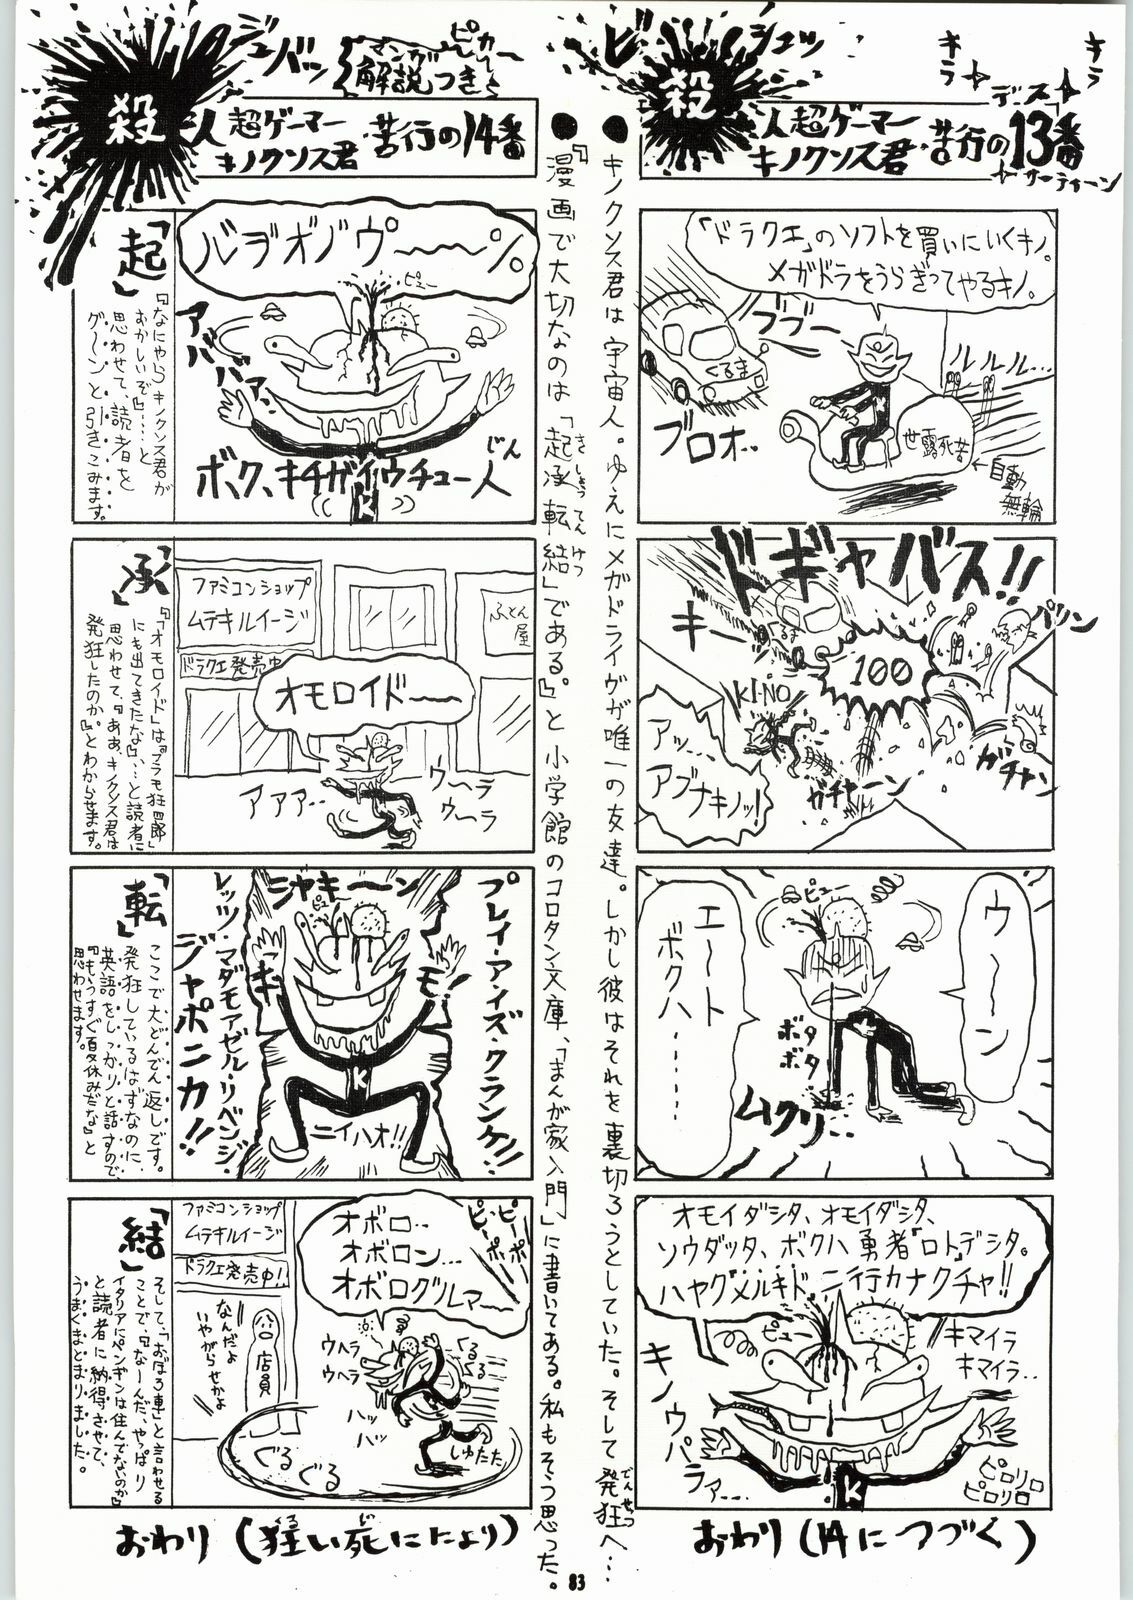 ビシュッ
キラ
キラ
殺人超ゲーマー
キノクンス君・苦行の13番
デス
サーティーン
「ドラクエ」のソフトを買いにいくキノ。
メガドラをうらぎってやるキノ。
ブブー
くるま
ルルル…
ブロオ‥
世露死苦
←自動
無輪
ドギャバス!!
キー
くるま
パリン
100
KI-NO
アッ…
アブナキノッ!
ガチャーン
ガチャン
ウ〜〜ン
ピュー
エ〜ト
ボクハ………
ボタ
ボタ
ムクリ…
オモイダシタ、オモイダシタ、
ソウダッタ、ボクハ勇者『ロト』デシタ。
ハヤクメルキドニ行カナクチャ!!
ピュー
キマイラ
キマイラ…
キノウパラァ…
K
ピロリロ
ピロリロ
おわり(14につづく)
●キノクンス君は宇宙人。ゆえにメガドライヴが唯一の友達。しかし彼はそれを裏切ろうとしていた。そして発狂へ…
でんせつ
●『漫画で大切なのは「起承転結」である。』と小学館のコロタン文庫、「まんが家入門」に書いてある。私もそう思った。
きしょうてんけつ
ジュバッ
マンガ
解説つき
ピカー
殺人超ゲーマー
キノクンス君・苦行の14番
「起」
『なにやらキノクンス君が
おかしいぞ』……と
思わせて、読者を
グ〜ンと引きこみます。
ルヂオノウ゜〜〜%。
ピュー
アババババァ‥
ボク、キチガイウチュー人
じん
K
「承」
『「オモロイド」は『プラモ狂四郎』
にも出てきたな』…と読者に
思わせて、『ああ、キノクンス君は
発狂したのか。』とわからせます。
ファミコンショップ
ムテキルイージ
ドラクエ発売中
ふとん屋
オモロイド〜〜
アアア‥
ウ〜ラ
ウ〜ラ
「転」
ここで大どんでん返しです。
発狂しているはずなのに、
英語をしっかりと話すので、
『もうすぐ夏休みだな』と
思わせます。
ジャキーーン
プレイ・アイズ・クランケン!!
ピュー
キ
モ!
レッツ・マダモアゼル・リベンジ・
ジャポニカ!!
K
ニイハオ!!
「結」
そして、「おぼろ車」と言わせる
ことで、『なーんだ、やっぱり
イタリアにペンギンは住んでないのか』
と読者に納得させて、
うまくまとまりました。
ファミコンショップ
ムテキルイージ
ドラクエ発売中!!
オボロ‥
オボロン…
オボログルマ〜〜
ピーポー
ピーポー
なんだよ
いやがらせかよ
店員
ウヘラ
ウヘラ
ぐるぐる
ハッ
ハッ
しゅたた
ぐる
ぐる
おわり(狂い死ににより)
くる
じ
83